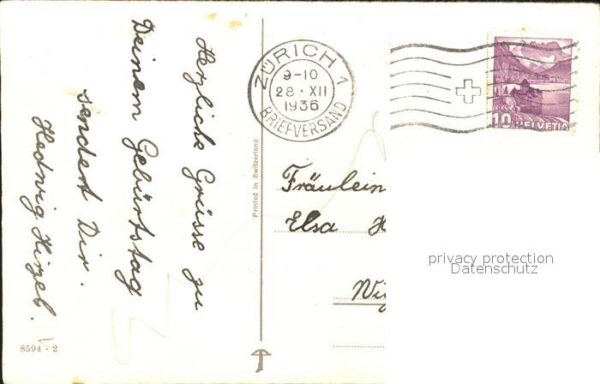 Herzliche Grüsse zu
Deinem Geburtstag
sendet Dir.
Hedwig Hirzel.
8594 - 2
Printed in Switzerland
ZÜRICH 1
9-10
28·XII
1936
BRIEFVERSAND
10 HELVETIA
Fräulein
Elsa H
privacy protection
Datenschutz